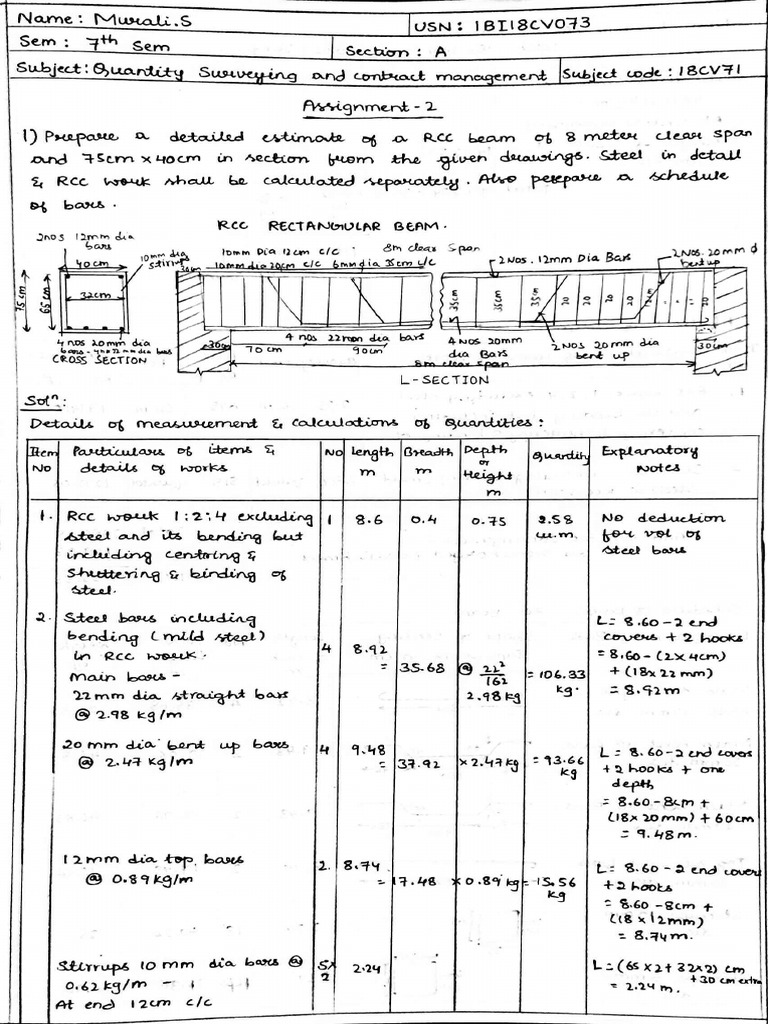 Name: Murali.S
USN: 1BI18CV073
Sem: 7th Sem
Section: A
Subject: Quantity Surveying and contract management
Subject code: 18CV71
Assignment-2
1) Prepare a detailed estimate of a RCC beam of 8 meter clear span
and 75cm x 40cm in section from the given drawings. Steel in detail
& RCC work shall be calculated separately. Also perepare a schedule
of bars.
RCC RECTANGULAR BEAM.
2nos 12mm dia
bars
40cm
10mm dia
stirrup
75cm
65cm
32cm
4 nos 20mm dia
bars - 4no22mm dia bars
CROSS SECTION
30cm
10mm Dia 12cm c/c
8m clear span
10mm dia 20cm c/c 6mm dia 35cm c/c
2nos. 12mm Dia Bars
2Nos. 20mm d
bent up
35cm
35cm
35cm
20
20
20
20
12cm
20
4 nos 22mm dia bars
30cm
70cm
90cm
4Nos 20mm
dia Bars
2Nos 20mm dia
bent up
30cm
8m clear span
L-SECTION
Soln:
Details of measurement & calculations of Quantities:
Item No
Particulars of items & details of works
No
Length m
Breadth m
Depth or Height m
Quantity
Explanatory Notes
1. RCC work 1:2:4 excluding 1 8.6 0.4 0.75 2.58 No deduction
steel and its bending but cu.m. for vol of
including centring & steel bars
shuttering & binding of
steel.
2. Steel bars including L= 8.60-2 end
bending (mild steel) covers + 2 hooks
in RCC work. 4 8.92 = 35.68 @ 22²/162 = 106.33 = 8.60-(2x4cm)
Main bars - 2.98kg kg. + (18x22mm)
22mm dia straight bars = 8.92m
@ 2.98 kg/m
20mm dia bent up bars 4 9.48 L= 8.60-2 end covers
@ 2.47 kg/m = 37.92 x2.47kg = 93.66 +2 hooks + one
kg depth
= 8.60-8cm +
(18x20mm) + 60cm
= 9.48m.
12mm dia top bars 2. 8.74 L= 8.60-2 end covers
@ 0.89kg/m = 17.48 x0.89kg = 15.56 +2 hooks
kg = 8.60-8cm +
(18x12mm)
= 8.74m.
Stirrups 10mm dia bars @ 5x 2.24 L=(65x2+32x2) cm
0.62kg/m - 2 +30cm extra
At end 12cm c/c = 2.24m.